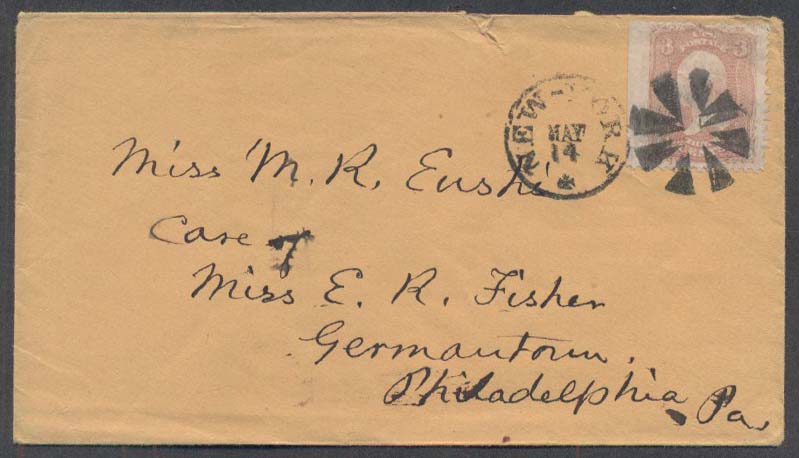 3 3
NEW-YORK
MAY
14
Miss M. R.
Care
Miss E. R. Fisher
Germantown.
Philadelphia Pa.